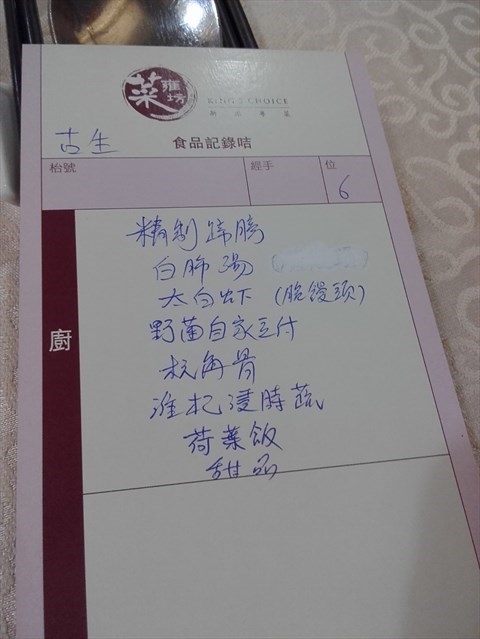 菜雍坊
KING'S CHOICE
古生
食品記錄咭
枱號 經手 位
6
廚
精制蹄膀
白肺湯
太白虾 (脆馒头)
野菌自家豆付
杭角骨
淮杞浸時蔬
荷葉飯
甜品